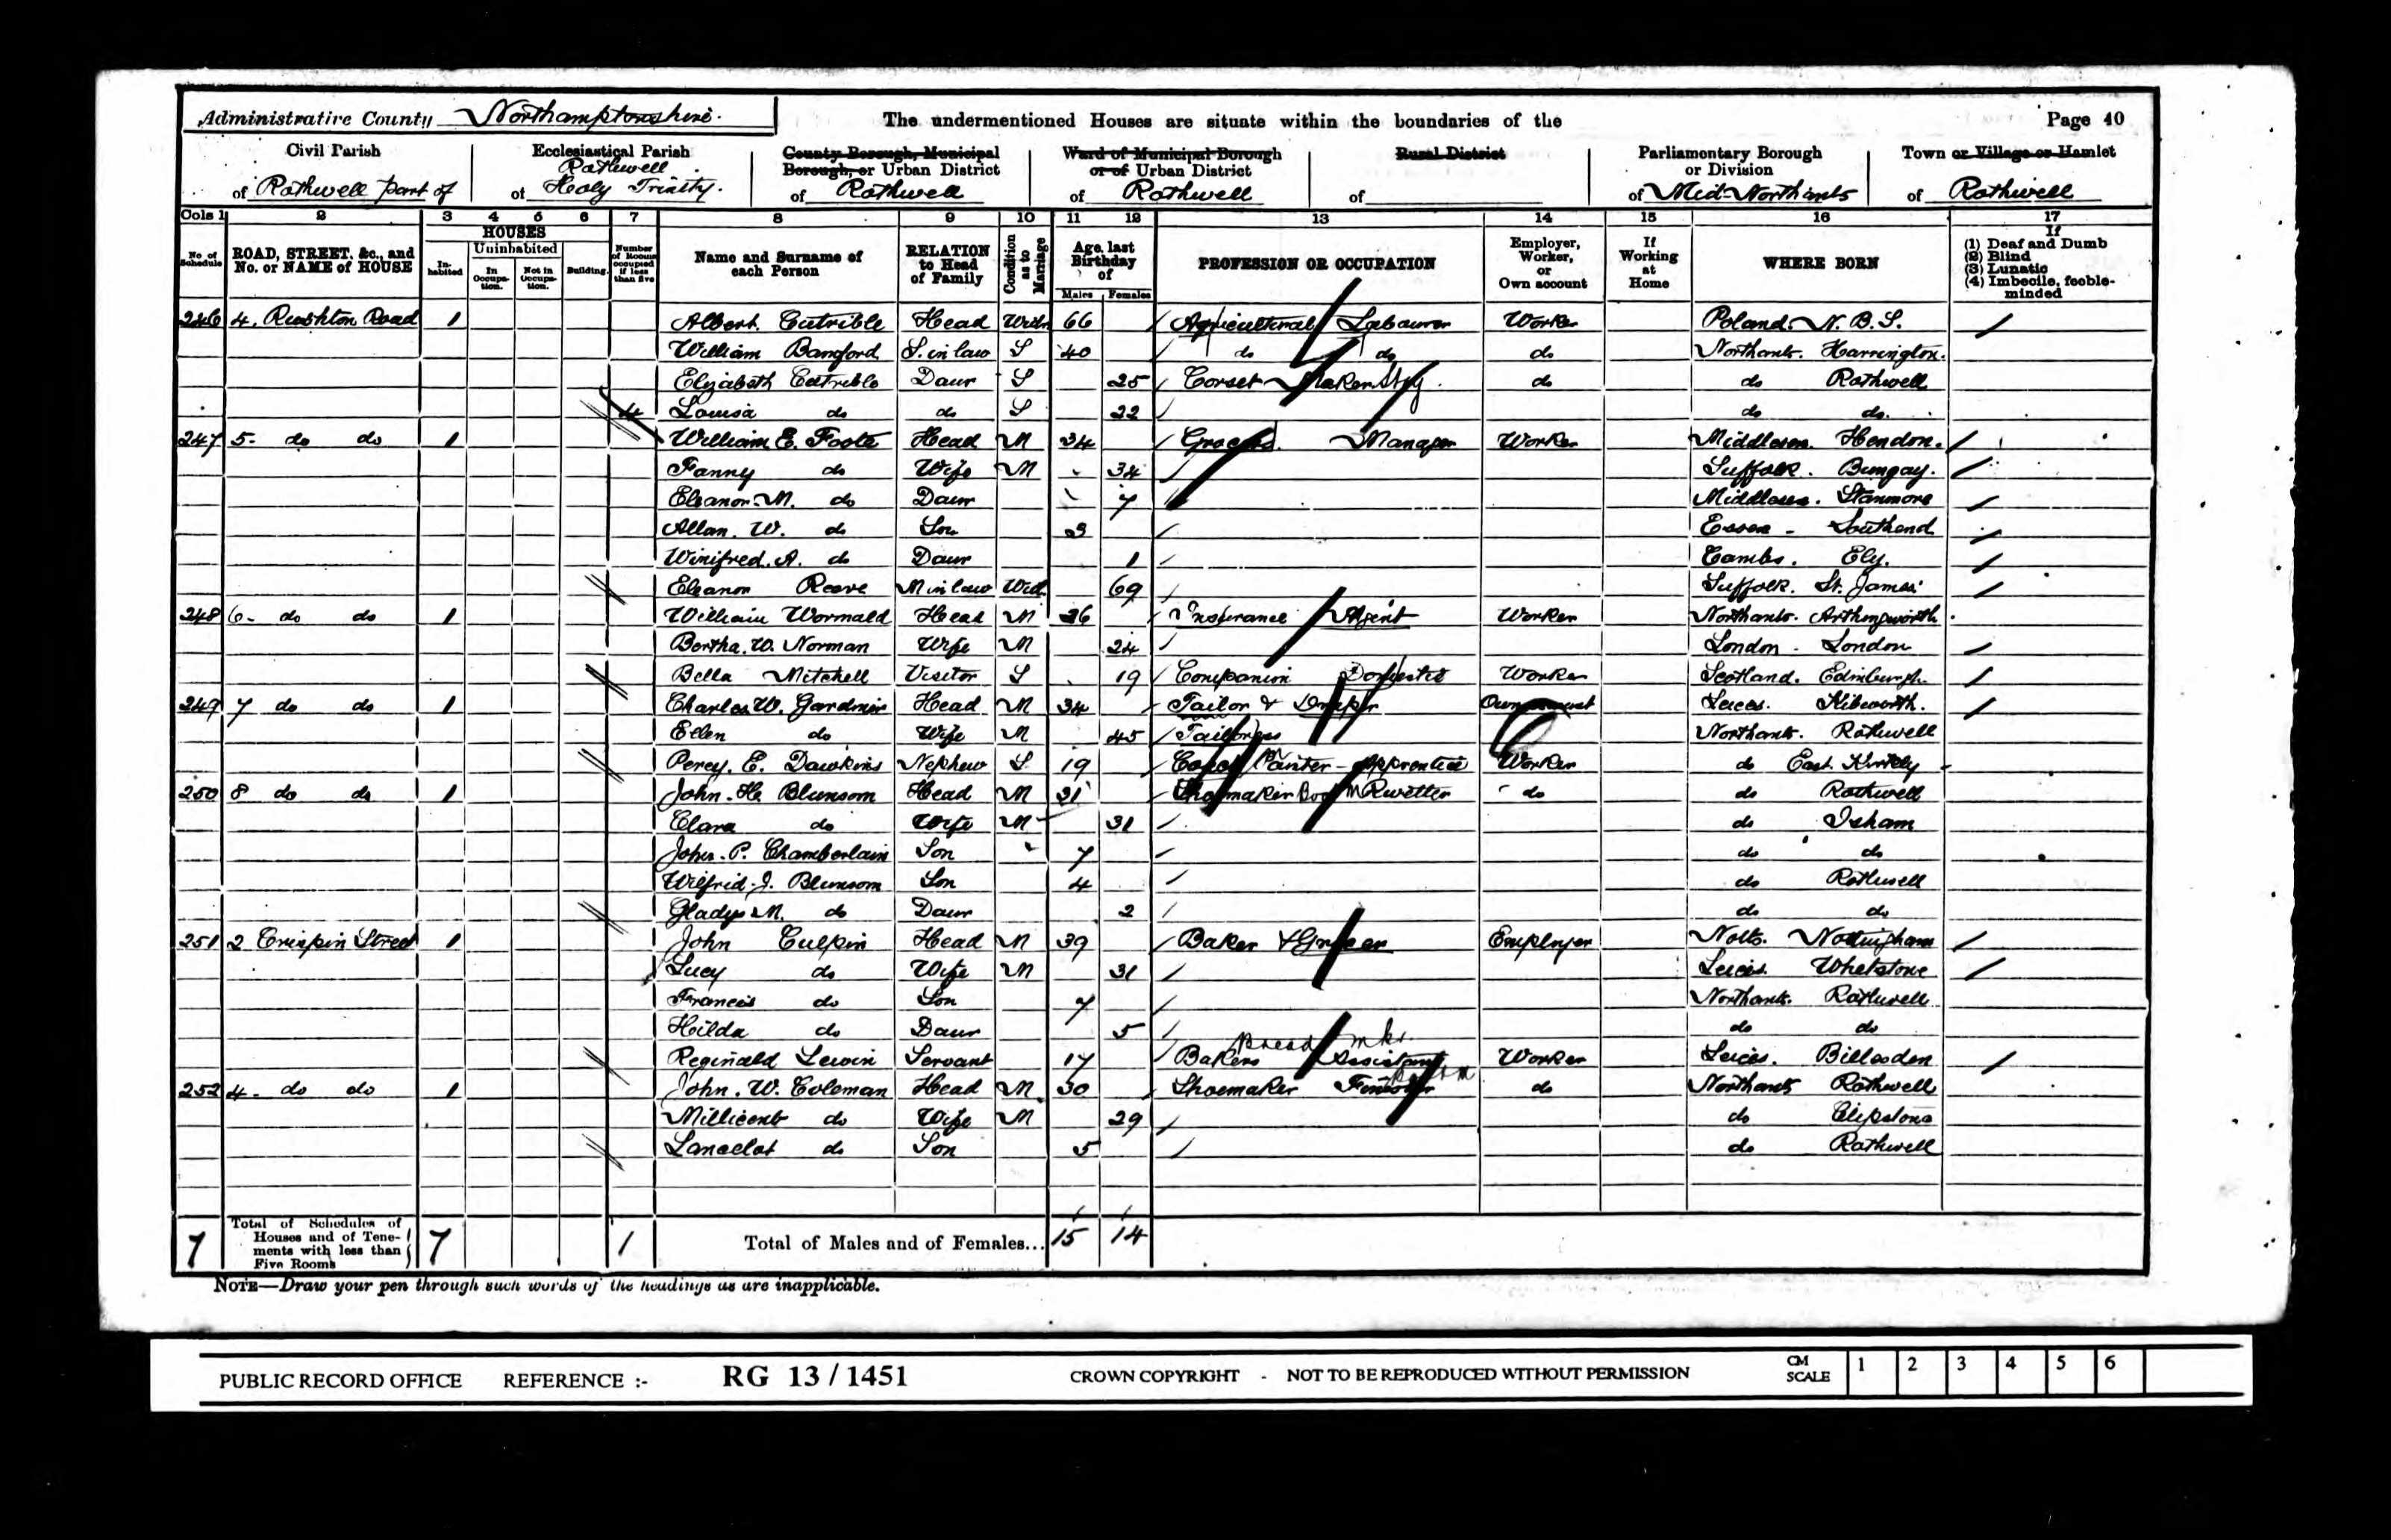 Administrative County Northamptonshire. The undermentioned Houses are situate within the boundaries of the Page 40
Civil Parish Ecclesiastical Parish County Borough, Municipal Ward of Municipal Borough Rural District Parliamentary Borough Town or Village or Hamlet
Rothwell Borough, or Urban District or of Urban District or Division
of Rothwell part of of Holy Trinity. of Rothwell of Rothwell of of Mid-Northants of Rothwell
Cols 1 2 3 4 5 6 7 8 9 10 11 12 13 14 15 16 17
No of Schedule ROAD, STREET, &c., and No. or NAME of HOUSE HOUSES In-habited Uninhabited In Occupa-tion. Not in Occupa-tion. Building. Number of Rooms occupied if less than five Name and Surname of each Person RELATION to Head of Family Condition as to Marriage Age last Birthday of Males Females PROFESSION OR OCCUPATION Employer, Worker, or Own account If Working at Home WHERE BORN If (1) Deaf and Dumb (2) Blind (3) Lunatic (4) Imbecile, feeble-minded
246 4, Rushton Road 1 Albert Cutrible Head Widr 66 Agricultural Labourer Worker Poland. N. B. S.
William Bamford S. in law S 40 do do do Northants. Harrington.
Elizabeth Cutrible Daur S 25 Corset Maker do do Rothwell
4 Louisa do do S 22 do do.
247 5- do do 1 William E. Foote Head M 34 Grocers Manager Worker Middlesex. Hendon.
Fanny do Wife M 34 Suffolk. Bungay.
Eleanor M. do Daur 7 Middlesex. Stanmore
Allan. W. do Son 3 Essex - Southend
Winifred. A. do Daur 1 Cambs. Ely.
Eleanor Reeve M in law Wid. 69 Suffolk. St. James
248 6- do do 1 William Wormald Head M 26 Insurance Agent Worker Northants. Arthingworth.
Bertha. W. Norman Wife M 24 London - London
Bella Mitchell Visitor S 19 Companion Domestic Worker Scotland. Edinburgh.
249 7 do do 1 Charles W. Gardner Head M 34 Tailor & Draper Own account Leics. Kibworth.
Ellen do Wife M 45 Tailoress Northants. Rothwell
Percy. E. Dawkins Nephew S 19 Coach Painter - Apprentice Worker do East
250 8 do do 1 John. H. Blunsom Head M 31 Shoemaker Boot Rivetter do do Rothwell
Clara do Wife M 31 do Isham
John. P. Chamberlain Son 7 do do
Wilfrid. J. Blunsom Son 4 do Rothwell
Gladys M. do Daur 2 do do
251 2 Crispin Street 1 John Culpin Head M 39 Baker & Grocer Employer Notts. Nottingham
Lucy do Wife M 31 Leics. Whetstone
Francis do Son 7 Northants. Rothwell
Hilda do Daur 5 do do
bread mkr
Reginald Lewin Servant 17 Bakers Assistant Worker Leics. Billesden
252 4- do do 1 John. W. Coleman Head M 30 Shoemaker Finisher do Northants Rothwell
Millicent do Wife M 29 do Clipstone
Lancelot do Son 5 do Rothwell
7 Total of Schedules of Houses and of Tene-ments with less than Five Rooms 7 1 Total of Males and of Females... 15 14
NOTE—Draw your pen through such words of the headings as are inapplicable.
PUBLIC RECORD OFFICE REFERENCE :- RG 13 / 1451 CROWN COPYRIGHT - NOT TO BE REPRODUCED WITHOUT PERMISSION CM SCALE 1 2 3 4 5 6